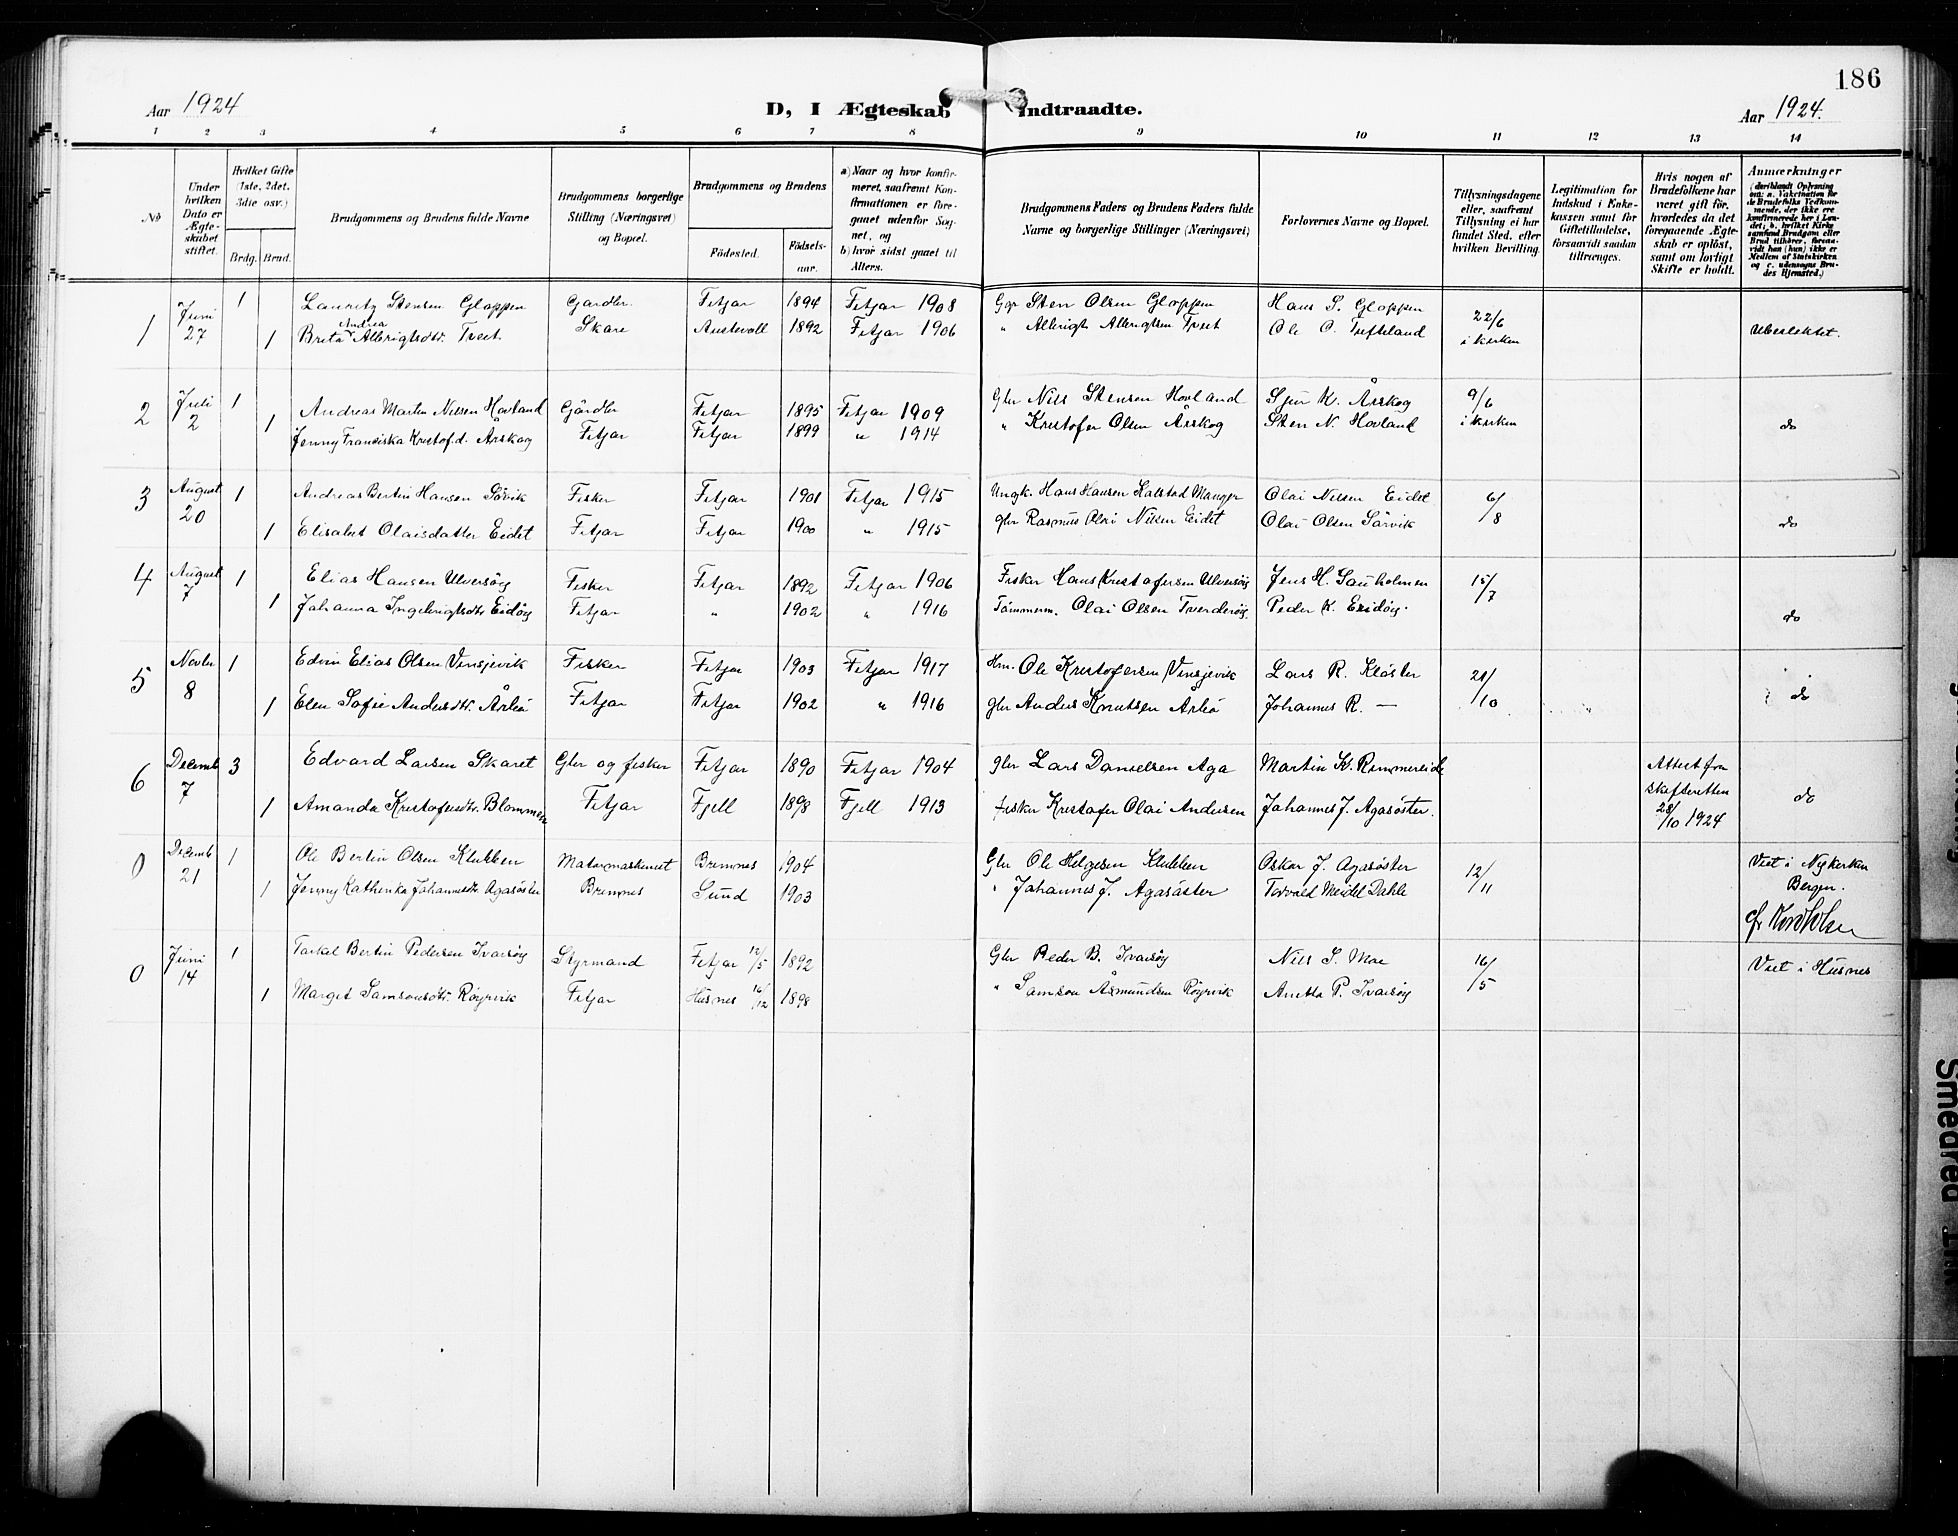 186
Aar 1924
D, I Ægteskab Indtraadte.
Aar 1924.
1 2 3 4 5 6 7 8 9 10 11 12 13 14
No
Under hvilken Dato er Ægteskabet stiftet.
Hvilket Gifte (1ste, 2det, 3die osv.)
Brdg. Brud.
Brudgommens og Brudens fulde Navne
Brudgommens borgerlige Stilling (Næringsvei) og Bopæl.
Brudgommens og Brudens
Födested. Födsels-aar.
a) Naar og hvor konfirmeret, saafremt Konfirmationen er foregaaet udenfor Sognet, og
b) hvor sidst gaaet til Alters.
Brudgommens Faders og Brudens Faders fulde Navne og borgerlige Stillinger (Næringsvei)
Forlovernes Navne og Bopæl.
Tillysningsdagene eller, saafremt Tillysning ei har fundet Sted, efter hvilken Bevilling.
Legitimation for Indskud i Enkekassen samt for Giftetilladelse, forsaavidt saadan tiltrænges.
Hvis nogen af Brudefolkene har været gift för, hvorledes da det foregaaende Ægteskab er oplöst, samt om lovligt Skifte er holdt.
Anmerkninger
1 Juni 27 1 Lauritz Stensen Gloppen Gårdbr. Fitjar 1894 Fitjar 1908 Gbr Sten Olsen Gloppen Hans S. Gloppen 22/6 i kirken
1 Brita Andrea Albrigtsdtr. Tveit Skare Austevoll 1892 Fitjar 1906 " Albrigt Albrigtsen Tveit Ole O. Tufteland Ubeslektet.
2 Juli 2 1 Andreas Martin Nilsen Hovland Gårdbr Fitjar 1895 Fitjar 1909 Gbr Nils Stensen Hovland Sjur K. Årskog 9/6 i kirken
1 Jenny Fransiska Kristofd. Årskog Fitjar Fitjar 1899 " 1914 " Kristofer Olsen Årskog Sten N. Hovland do
3 August 20 1 Andreas Bertin Hansen Sörvik Fisker Fitjar 1901 Fitjar 1915 Ungk. Hans Hansen Kalstad Manger Olai Nilsen Eidet 6/8
1 Elisabet Olaisdatter Eidet Fitjar Fitjar 1900 " 1915 gbr Rasmus Olai Nilsen Eidet Olai Olsen Sörvik do
4 August 7 1 Elias Hansen Ulversöy Fisker Fitjar 1892 Fitjar 1906 Fisker Hans Kristofersen Ulversöy Jens H. Sauholmen 15/7
1 Johanna Ingebrigtsdtr Eidöy Fitjar " 1902 " 1916 Tömmerm. Olai Olsen Tverderöy Peder K. Eidöy. do
5 Novbr 8 1 Edvin Elias Olsen Vinsjevik Fisker Fitjar 1903 Fitjar 1917 Hm. Ole Kristofersen Vinsjevik Lars R. Klöster 21/10
1 Elen Sofie Andersdtr. Årbö Fitjar Fitjar 1902 " 1916 gbr Anders Knutsen Årbö Johannes R. — do
6 Decemb 7 3 Edvard Larsen Skaret Gbr og fisker Fitjar 1890 Fitjar 1904 gbr Lars Danielsen Aga Martin K. Rimmereide Attest fra skifteretten 28/10 1924
1 Amanda Kristofersdtr. Blommen Fitjar Fjell 1898 Fjell 1913 fisker Kristofer Olai Andersen Johannes J. Agasöster. do
0 Decemb 21 1 Ole Bertin Olsen Klubben Matormaskinist Bremnes 1904 Gbr Ole Helgesen Klubben Oskar J. Agasöster 12/11 Viet i Nykirken Bergen.
1 Jenny Kathinka Johannesdtr Agasöster Bremnes Sund 1903 " Johannes J. Agasöster Torvald Meidel Dahle
0 Juni 14 1 Torkel Bertin Pedersen Ivarsöy Styrmand Fitjar 12/5 1892 Gbr Peder B. Ivarsöy Nils S. Moe 16/5 Viet i Husnes
1 Margit Samsonsdtr. Röyrvik Fitjar Husnes 16/12 1898 " Samson Åsmundsen Röyrvik Anetta P. Ivarsöy